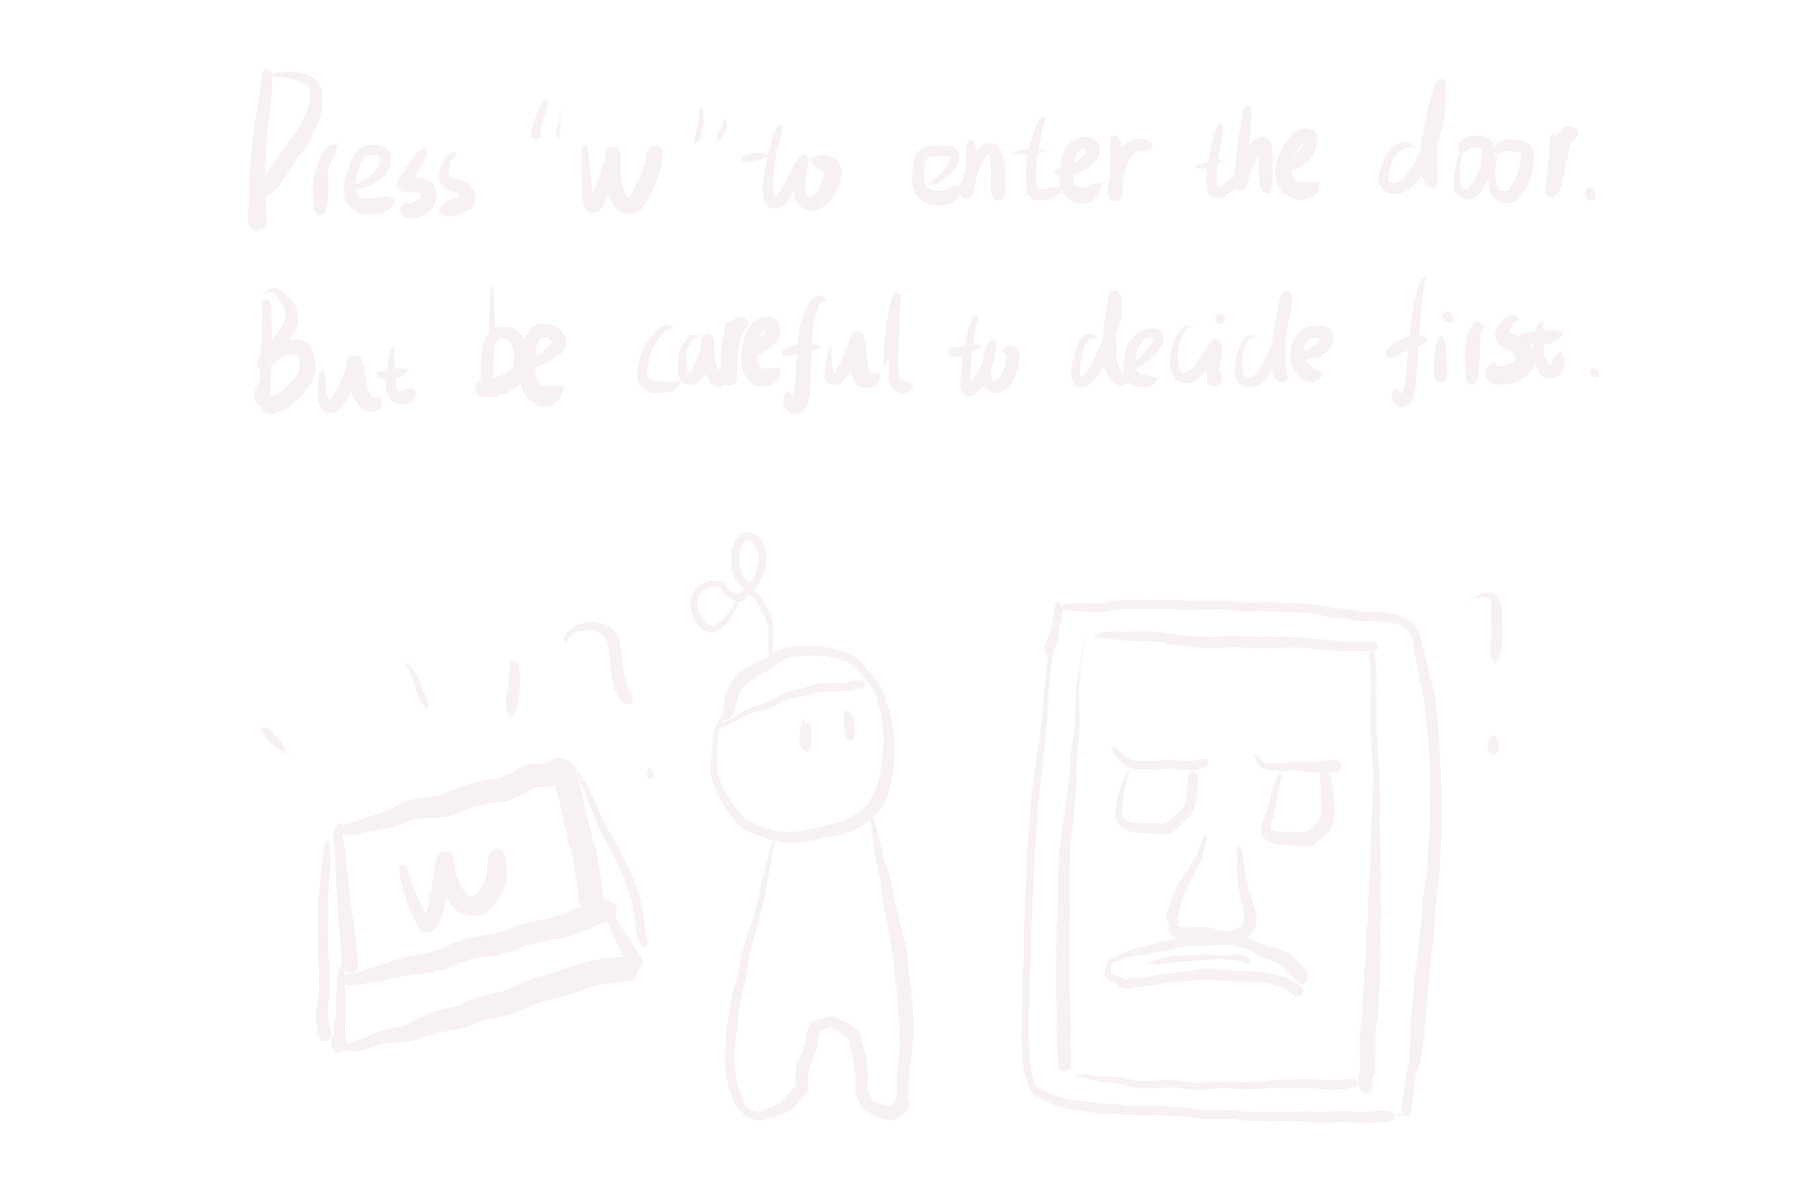 Press "w" to enter the door.
But be careful to decide first.
W